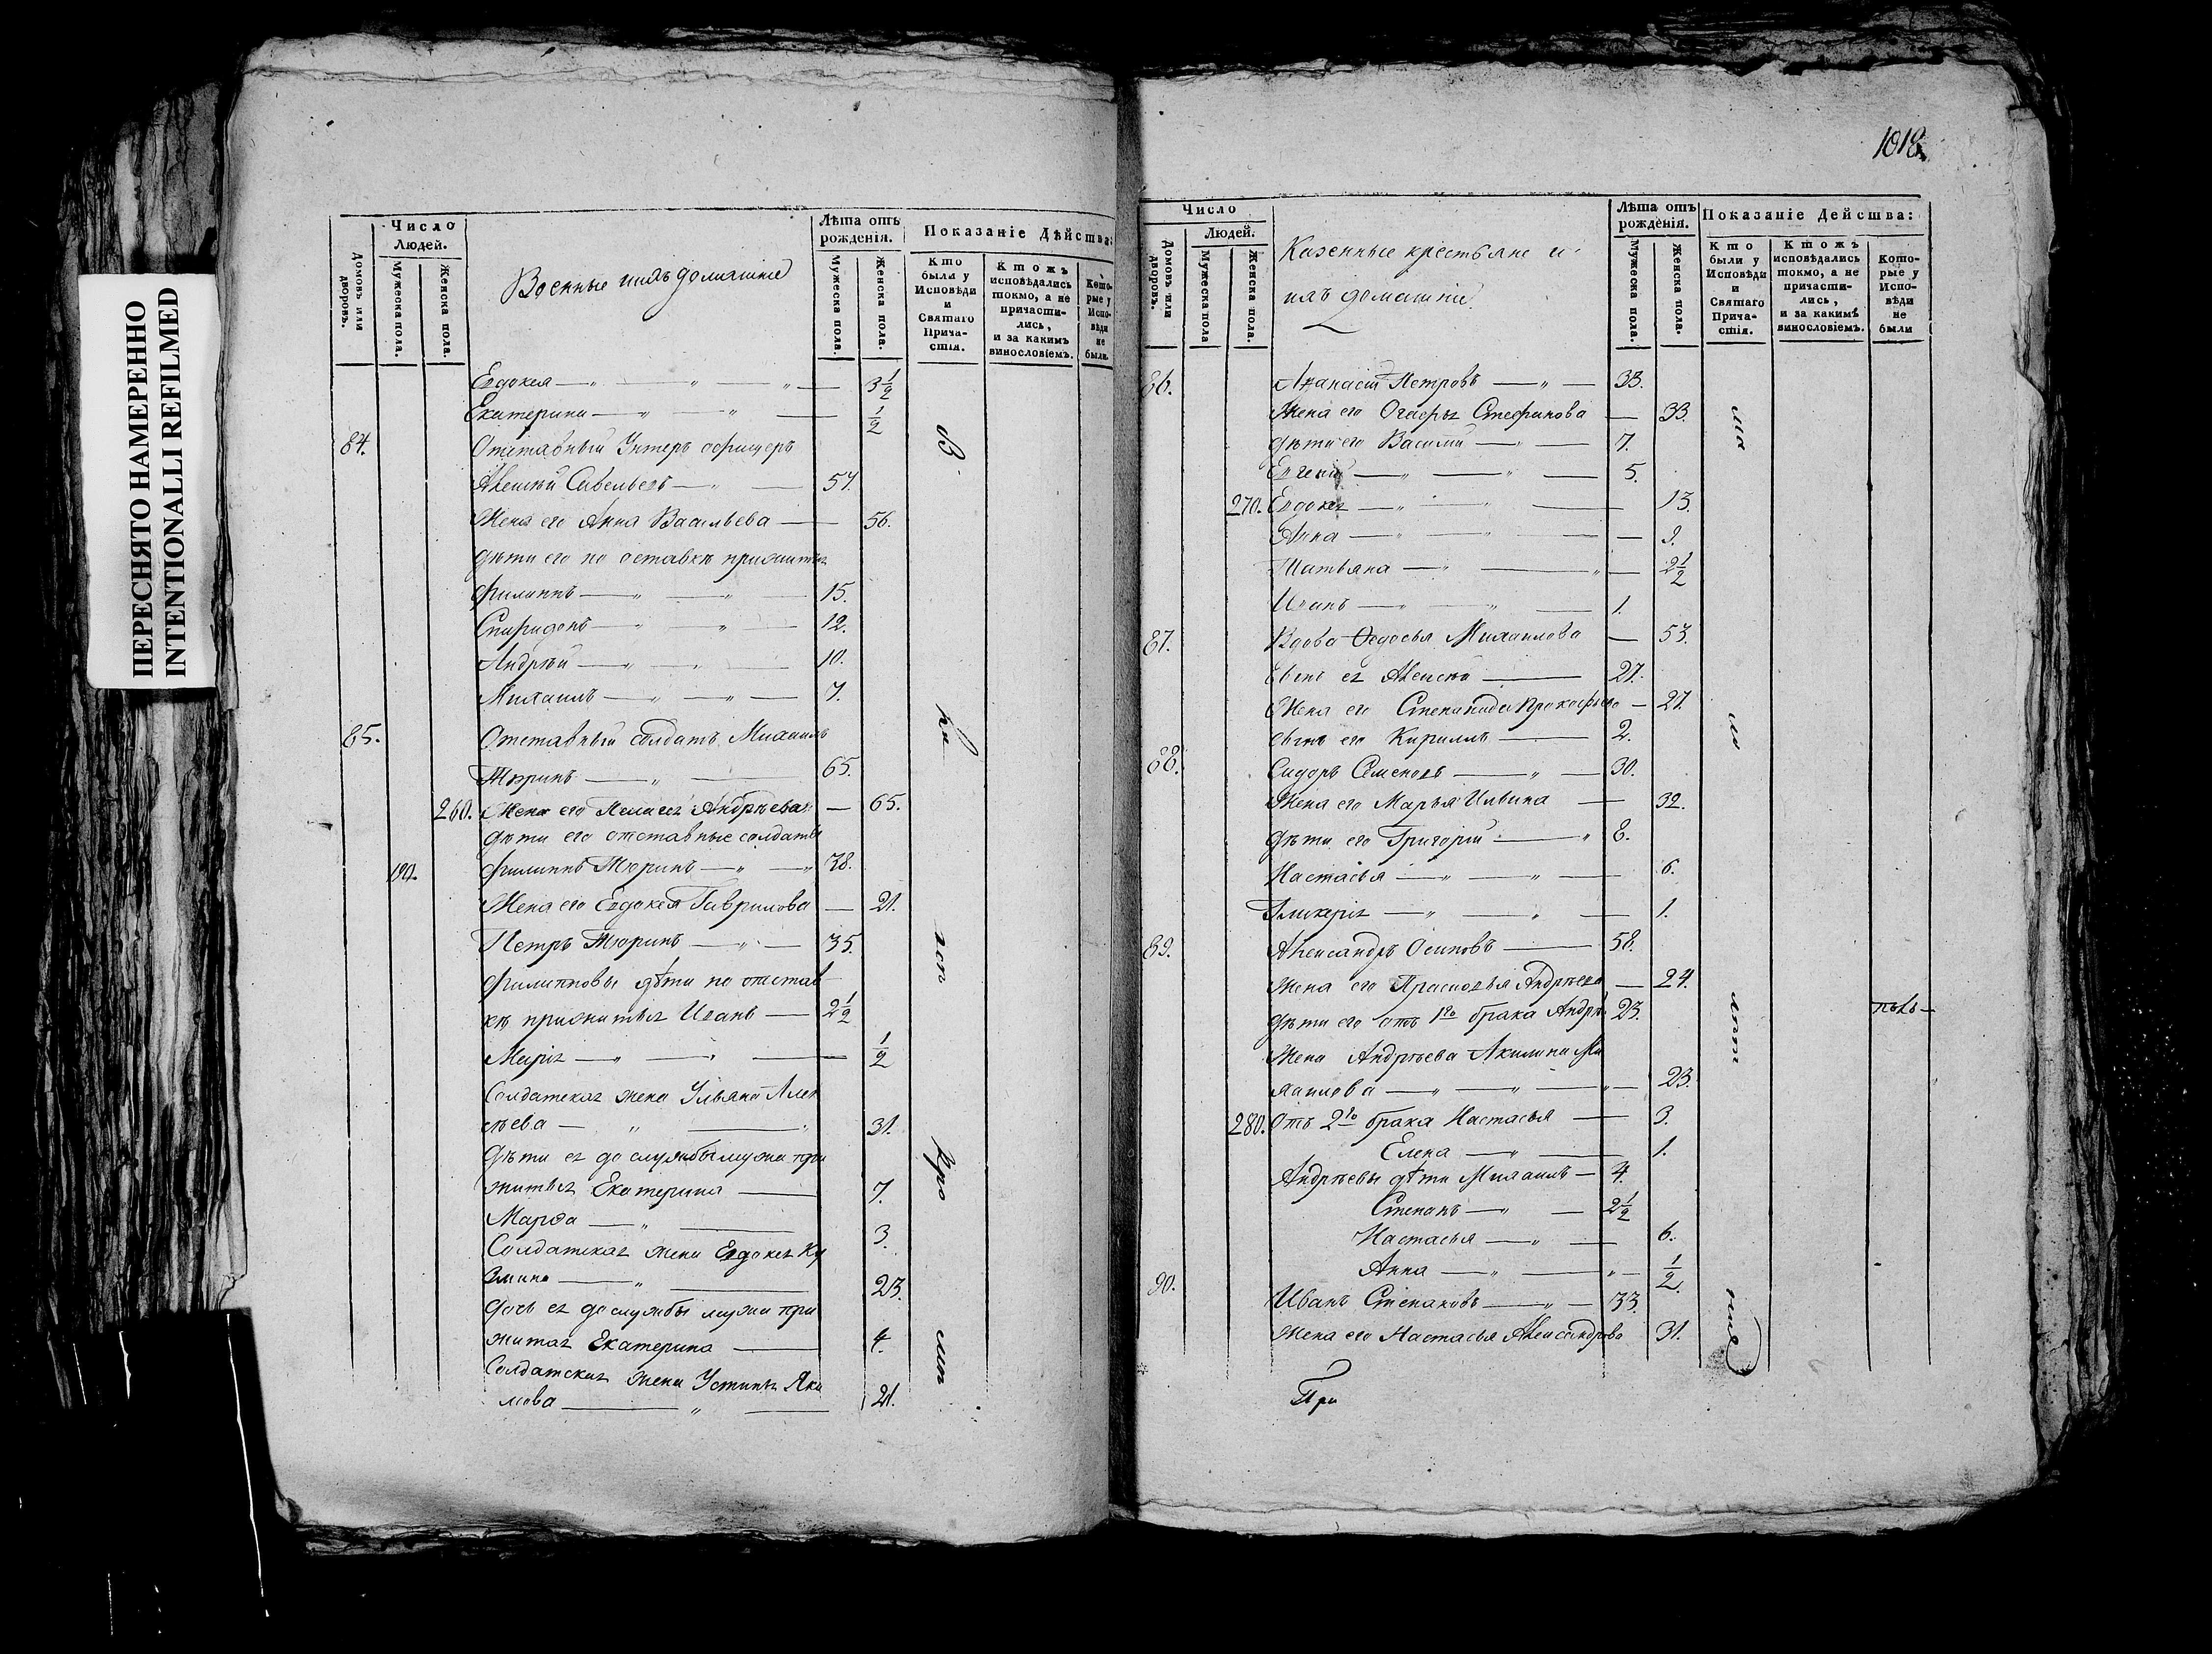 ПЕРЕСНЯТО НАМЕРЕННО
INTENTIONALLI REFILMED
Число
Людей.
Домовъ или дворовъ.
Мужеска пола.
Женска пола.
Военные и ихъ домашніе
Лѣта отъ рожденія.
Мужеска пола.
Женска пола.
Показаніе Дѣйства:
Кто были у Исповѣди и Святаго Прича-стія.
Ктожъ исповѣдались токмо, а не причасти-лись, и за какимъ винословіемъ.
Кото-рые у Испо-вѣди не были.
Евдокея 3 1/2
Екатерина 1/2
84. Отставный Унтеръ офицеръ
Алексѣй Савельевъ 57.
Жена его Анна Васильева 56.
Дѣти его по оставкѣ прижитыя
Филиппъ 15.
Спиридонъ 12.
Андрѣй 10.
Михаилъ 7.
85. Отставный солдатъ Михаилъ
Тюринъ 65.
260. Жена его Пелагея Андрѣева 65.
Дѣти его отставные солдаты
190. Филиппъ Тюринъ 38.
Жена его Евдокея Гаврилова 21.
Петръ Тюринъ 35.
Филипповы дѣти по отстав
кѣ прижитыя Иванъ 2 1/2
Марія 1/2
Солдатская жена Ульяна Алек
сѣева 31.
Дѣти ея до службы мужа при
житыя Екатерина 7.
Марѳа 3.
Солдатская жена Евдокея Ку
змина 23.
Дочь ея до службы мужа при
житая Екатерина 4.
Солдатская жена Устинья Яки
мова 21.
1018
Число
Людей.
Домовъ или дворовъ.
Мужеска пола
Женска пола.
Казенные крестьяне и
ихъ домашніе
Лѣта отъ рожденія.
Мужеска пола.
Женска пола.
Показаніе Действа:
Кто были у Исповѣди и Святаго Прича-стія.
Ктожъ исповѣдались токмо, а не причасти-лись, и за какимъ винословіемъ.
Кото-рые у Испо-вѣди не были
86. Аѳанасій Петровъ 33.
Жена его Стефанова 33.
Дѣти его Василій 7.
Евгеній 5.
270. Евдокея 13.
Анна 9.
Татьяна 2 1/2
Иванъ 1.
87. Вдова Ѳедосья Михаилова 53.
Сынъ ея Алексѣй 27.
Жена его Степанида Прокофьева 27.
Сынъ его Кириллъ 2.
88. Сидоръ Семеновъ 30.
Жена его Марья Ильина 32.
Дѣти его Григорій 8.
Настасья 6.
Гликерія 1.
89. Александръ Осиповъ 58.
Жена его Прасковья Андрѣева 24.
Дѣти его отъ 1го брака Андрѣй 23.
Жена Андрѣева Акилина Ми
хаилова 23.
280. Отъ 2го брака Настасья 3.
Елена 1.
Андрѣевы дѣти Михаилъ 4.
Степанъ 2 1/2
Настасья 6.
Анна 1/2
90. Иванъ Степановъ 33.
Жена его Настасья Александрова 31.
При